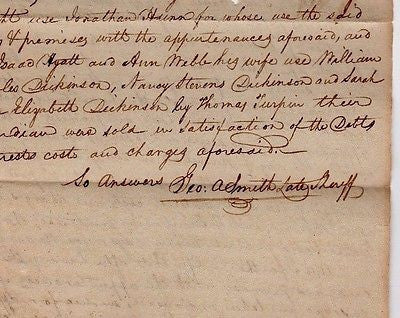 ht use Jonathan Hunn for whose use the said
& premises with the appurtenances aforesaid, and
Isaac Hyatt and Ann Webb his wife use William
les Dickinson, Nancy Stevens Dickinson and Sarah
Elizabeth Dickinson by Thomas Turpin their
rdian were sold in Satisfaction of the Debts
erests costs and charges aforesaid.
So Answers Geo: A Smith Late Sheriff